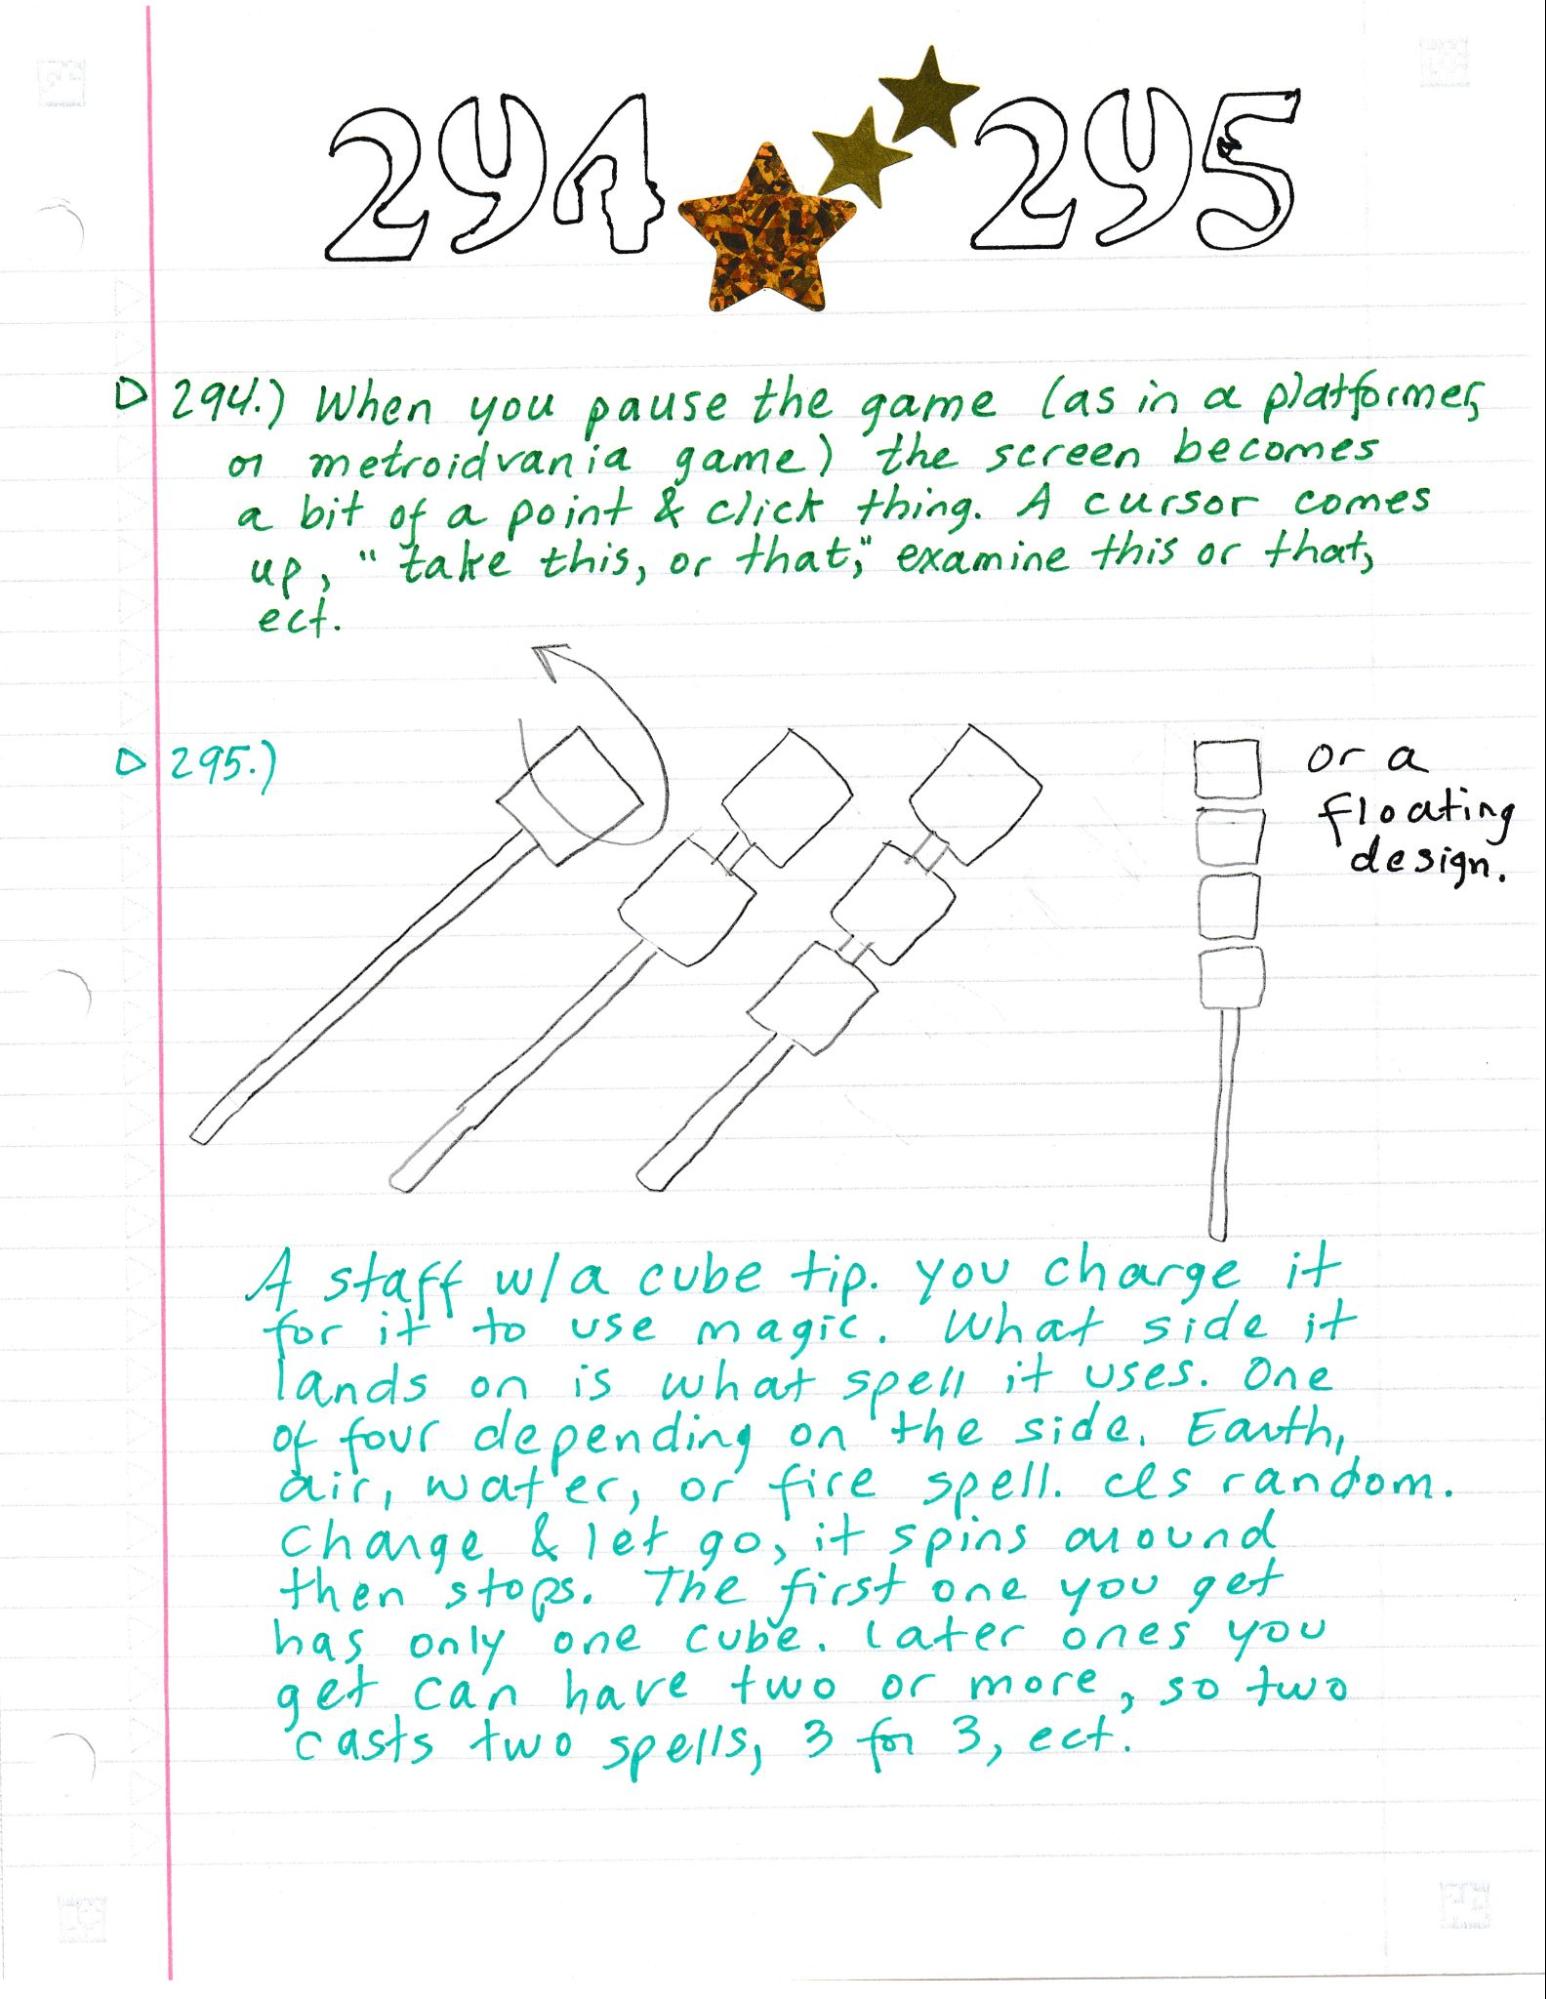 294 295
294.) When you pause the game (as in a platformer,
or metroidvania game) the screen becomes
a bit of a point & click thing. A cursor comes
up, "take this, or that," examine this or that,
ect.
295.)
or a
floating
design.
A staff w/a cube tip. you charge it
for it to use magic. What side it
lands on is what spell it uses. One
of four depending on the side. Earth,
air, water, or fire spell. Is random.
Charge & let go, it spins around
then stops. The first one you get
has only one cube. Later ones you
get can have two or more, so two
casts two spells, 3 for 3, ect.